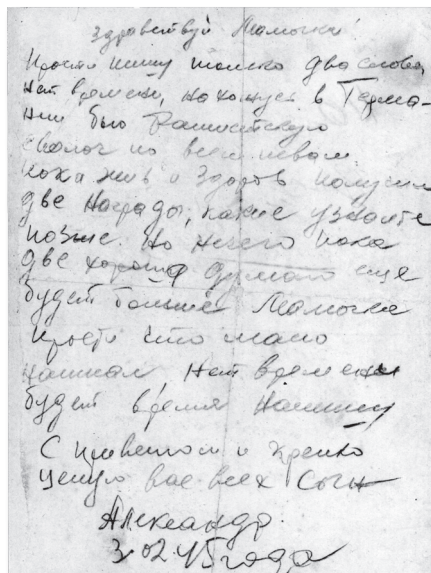 Здравствуй Мамочка!
Прости пишу только два слова,
Нет времени, нахожусь в Герма-
нии бью Фашистскую
сволоч по всем швам.
пока жив и здоров получил
две награды, какие узнаите
позже. Но нечего пока
две хорошо думаю еще
будет больше Мамочка
прости что мало
написал Нет времени
будет время напишу
С приветом и крепко
целую вас всех Сын
Александр
3.02.45 года